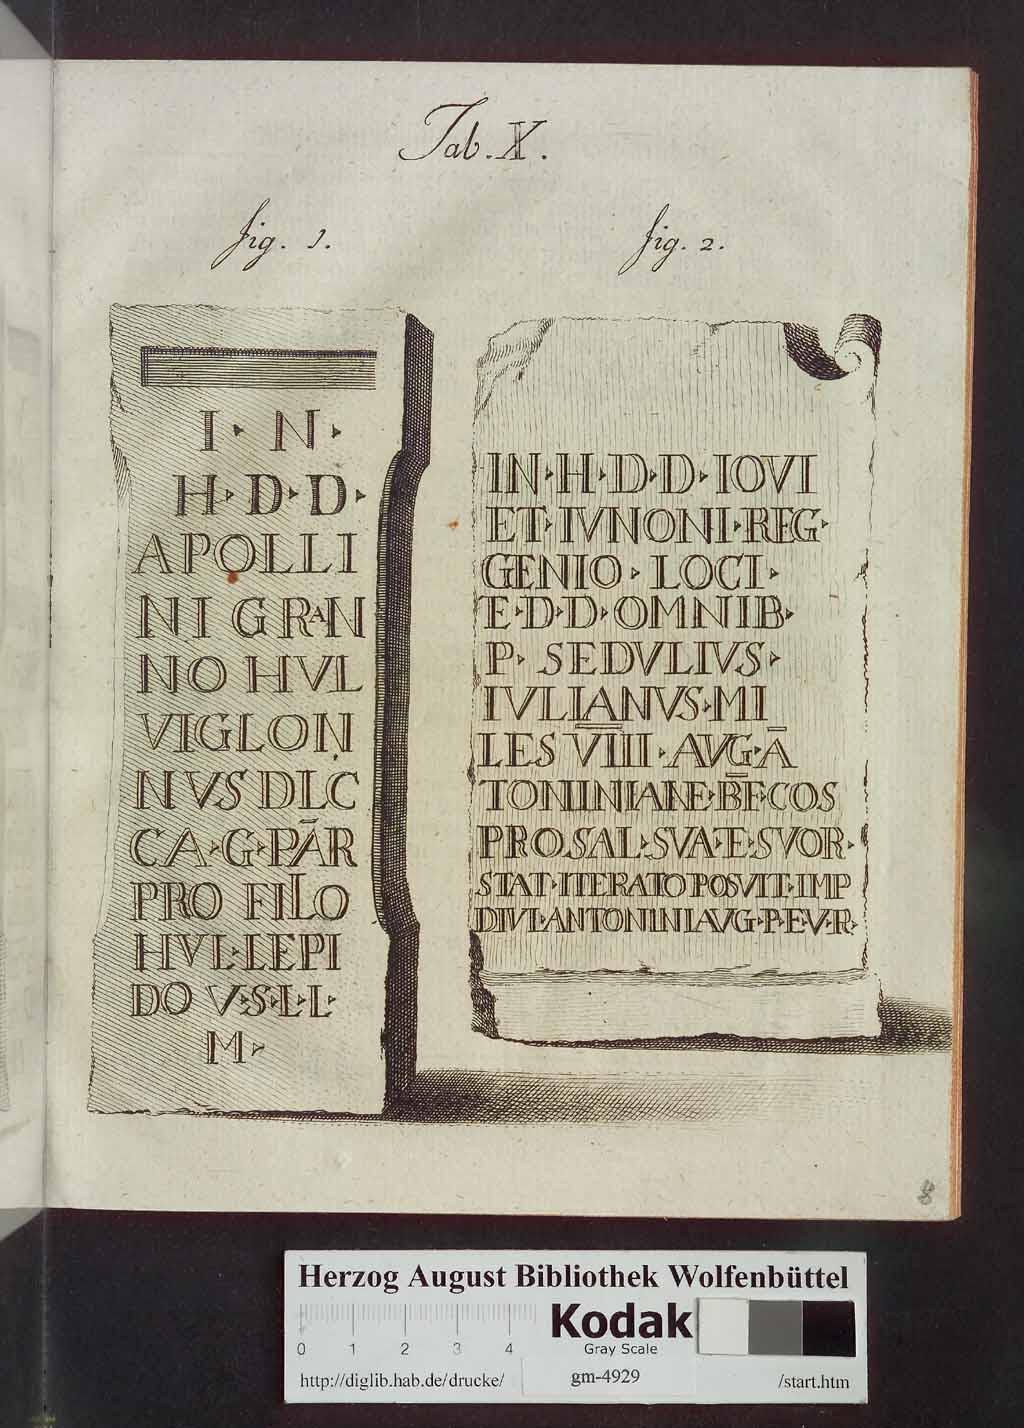 Tab. X.
fig. 1.
I· N·
H· D· D·
APOLLI
NI GRAN
NO HVL
VIGLON
NVS DLC
CA·G·PĀR
PRO FILO
HVL·LEPI
DO V·S·L·L·
M·
fig. 2.
IN·H·D·D·IOVI
ET·IVNONI·REG·
GENIO· LOCI·
E·D·D·OMNIB·
P· SEDVLIVS·
IVLIANVS·MI
LES V̅I̅I̅I·AVG·Ā
TONINIANE·B̅F·COS
PRO.SAL·SVA·E·SVOR·
STAT·ITERATO POSVIT·IMP
DIVI·ANTONINI AVG·P·E·V·R·
8
Herzog August Bibliothek Wolfenbüttel
Kodak
Gray Scale
0 1 2 3 4
http://diglib.hab.de/drucke/ gm-4929 /start.htm